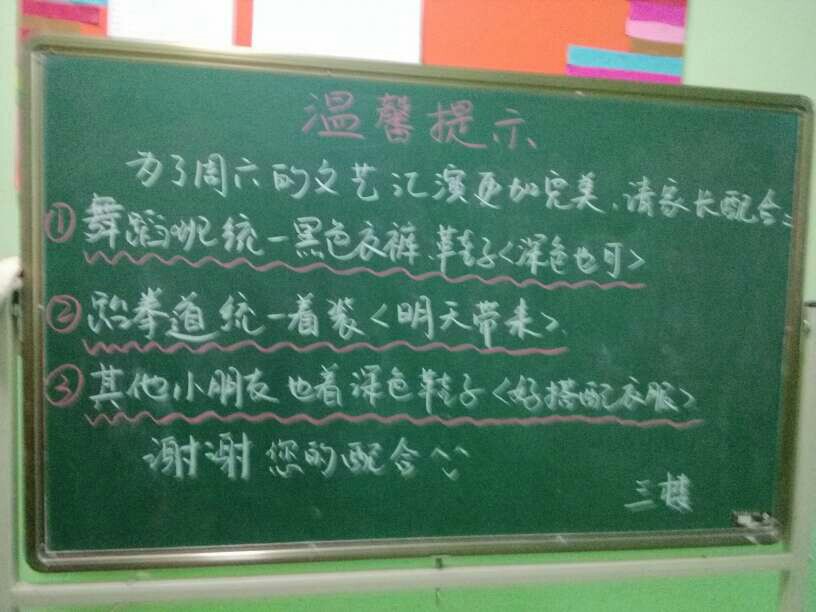 温馨提示
为了周六的文艺汇演更加完美、请家长配合:
①舞蹈班统一黑色衣裤、鞋子<深色也可>
②跆拳道统一着装<明天带来>
③其他小朋友也着深色鞋子<好搭配衣服>
谢谢您的配合^^
三楼